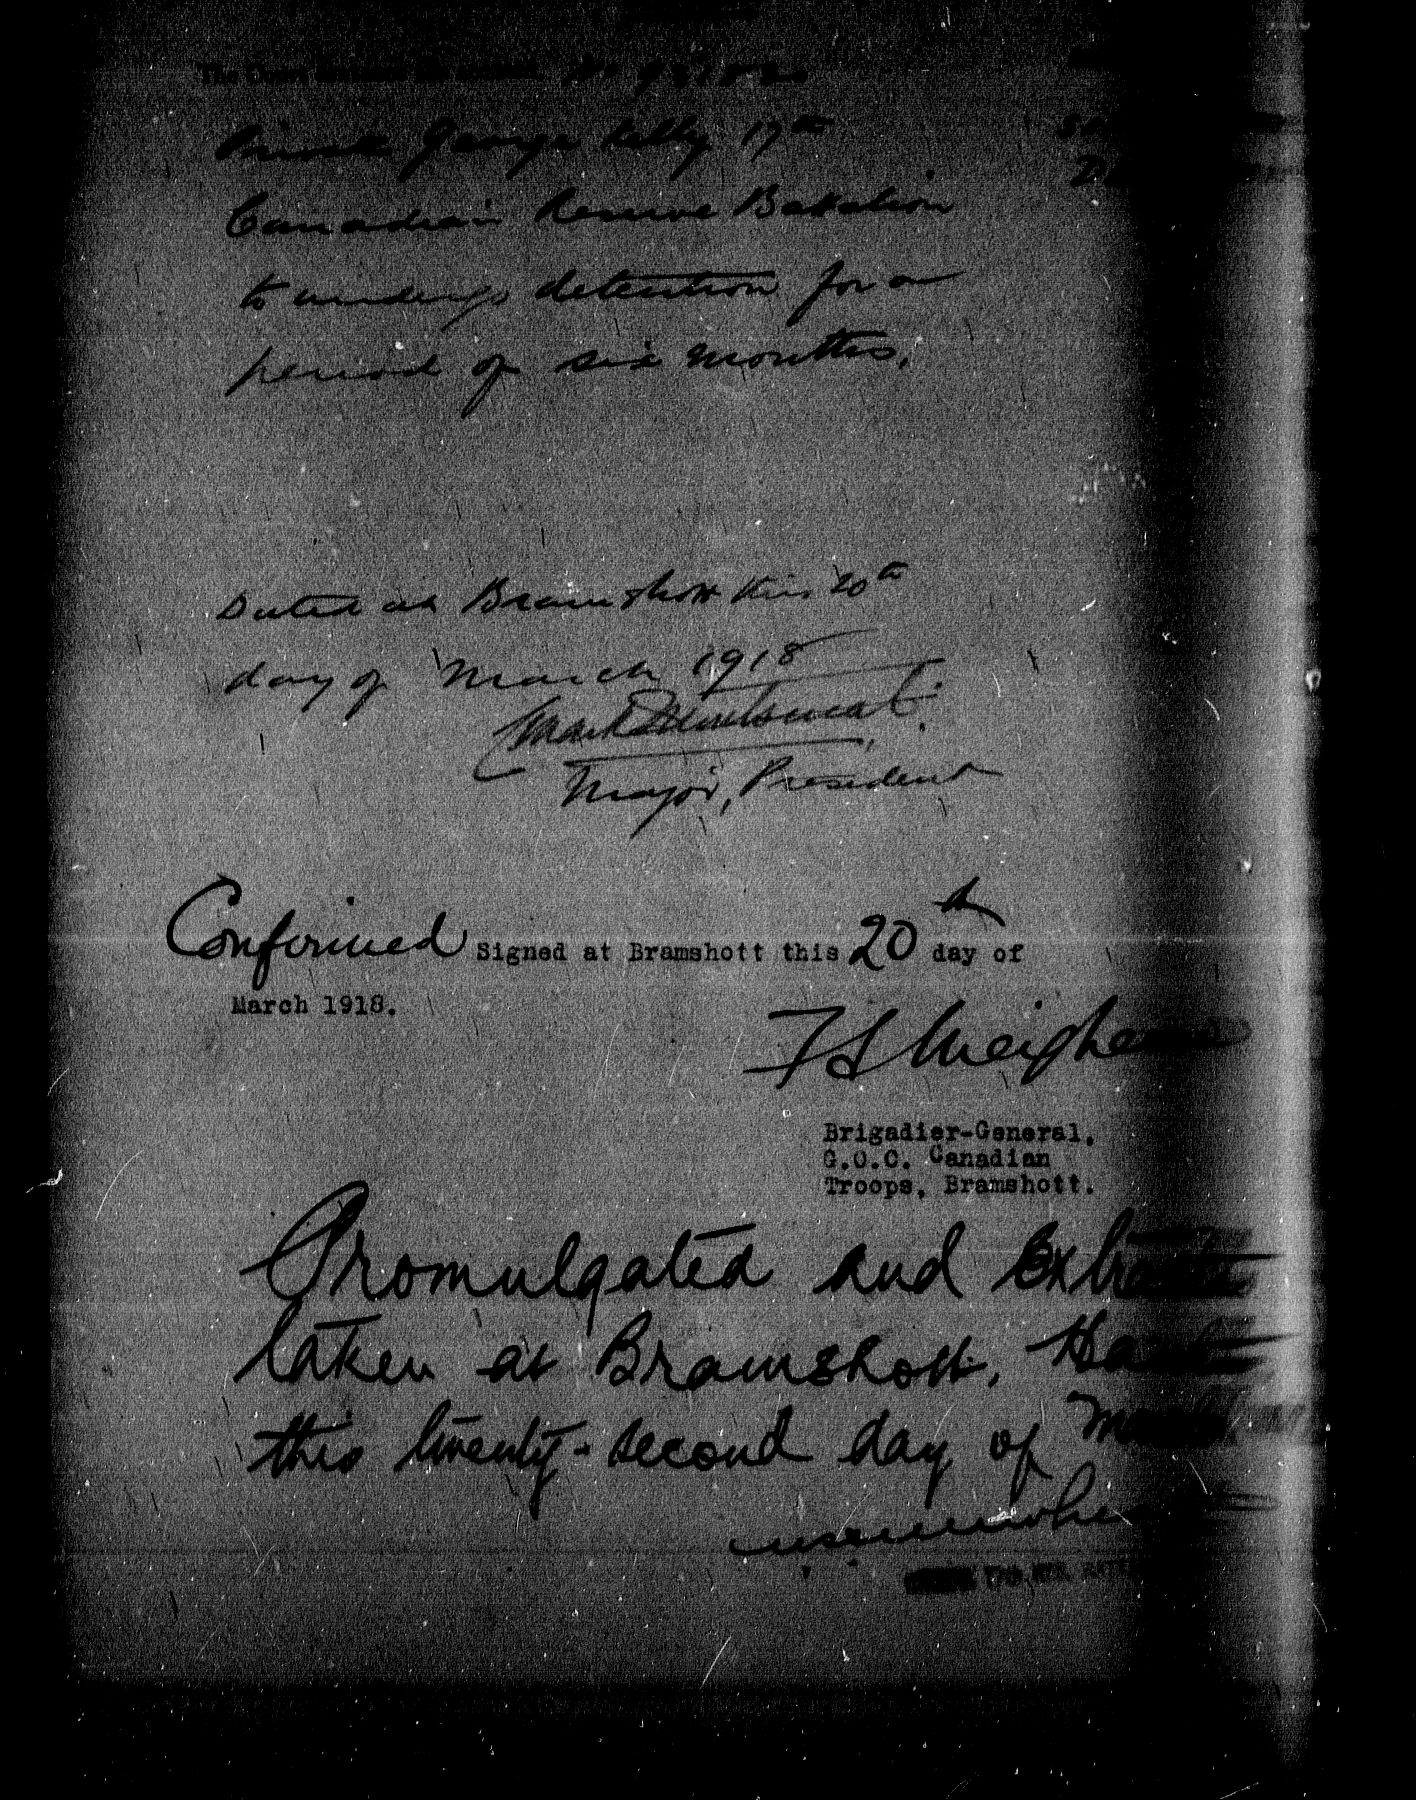 The Court
Private George Kelly 17th
Canadian Reserve Battalion
to undergo detention for a
period of six months.
Dated at Bramshott this 20th
day of March 1918
Major, President
Confirmed Signed at Bramshott this 20th day of
March 1918.
F S Meighen
Brigadier-General,
G.O.C. Canadian
Troops, Bramshott.
Promulgated and Extracts
taken at Bramshott, Hants
this twenty-second day of March